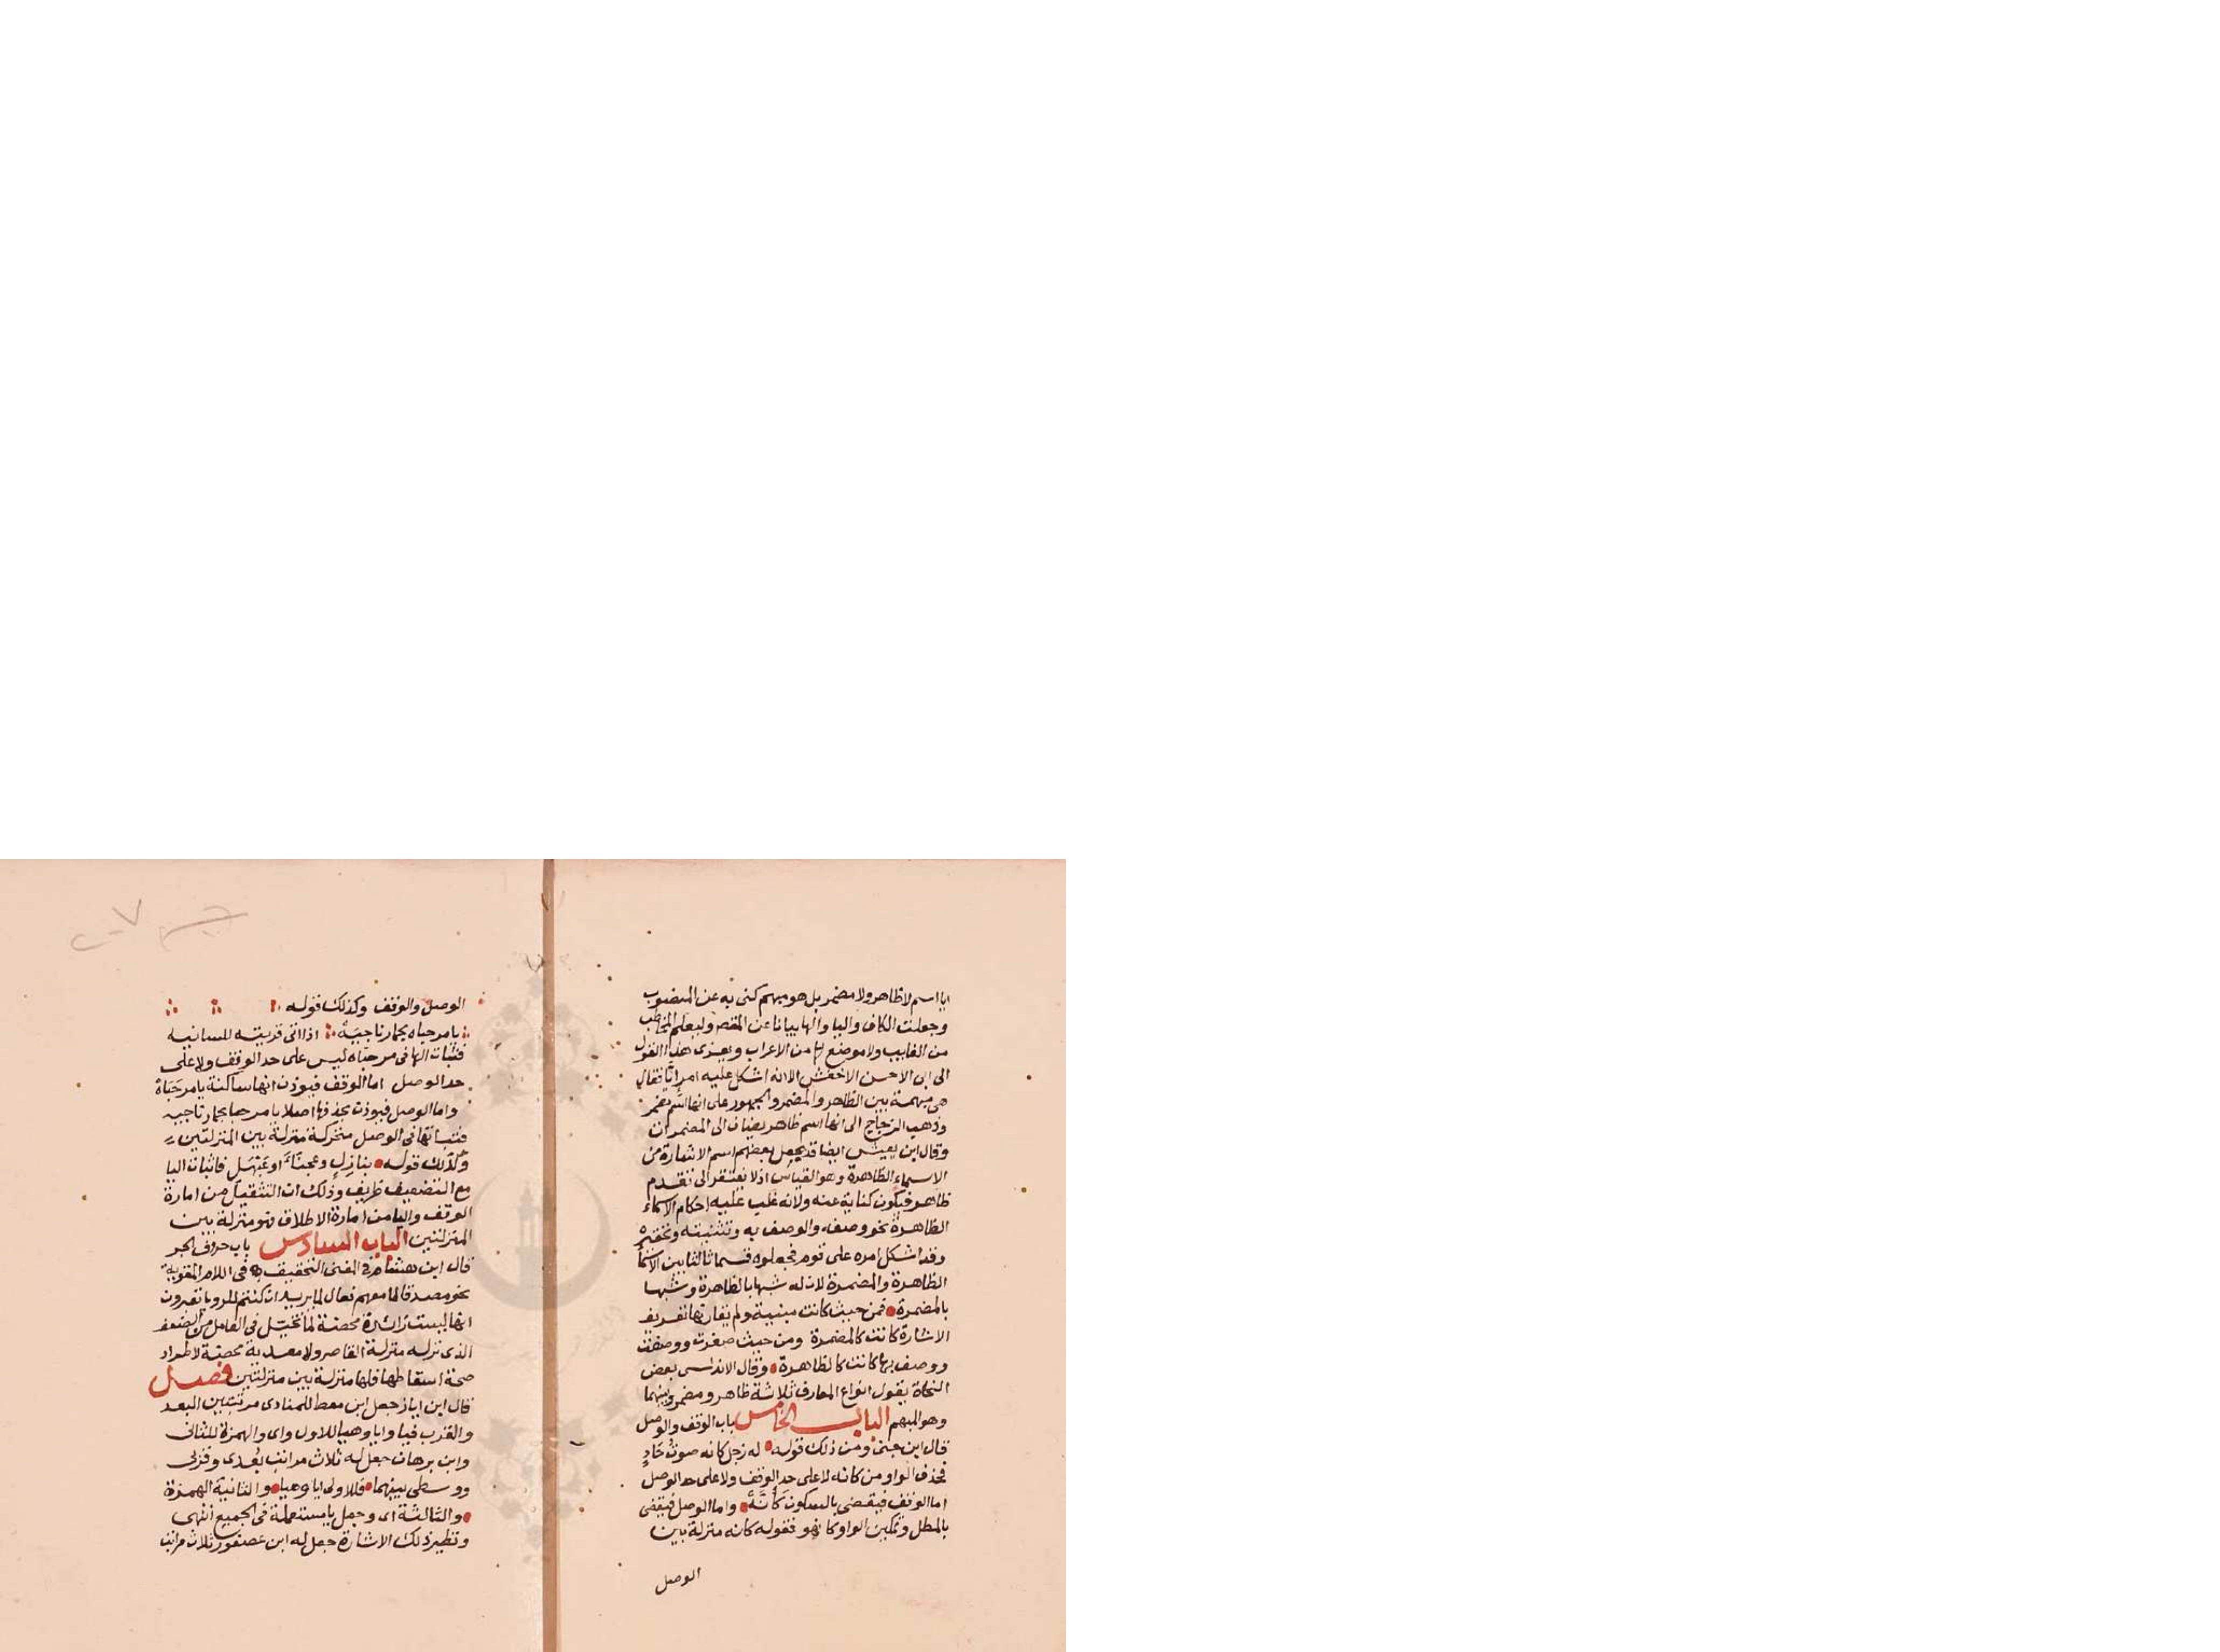 ايا اسم لا ظاهر ولا مضمر بل هو مبهم كنى به عن المنصوب
وجعلت الكاف واليا والها بيانا عن المقصود ليعلم المخاطب
من الغايب ولا موضع لها من الاعراب ويعزى هذا القول
الى ابى الاحسن الاخفش الا انه اشكل عليه امر ايا فقال
هى مبهمة بين الظاهر والمضمر والجمهور على انها اسم مضمر
وذهب الزجاج الى انها اسم ظاهر يضاف الى المضمرات
وقال ابن يعيش ايضا قد يجعل بعضهم اسم الاشارة من
الاسماء الظاهرة وهو القياس اذ لا يفتقر الى تقدم
ظاهر فيكون كناية عنه ولانه غلب عليه احكام الاسماء
الظاهرة نحو وصفه والوصف به وتثنيته وتحقيره
وقد اشكل امره على قوم فجعلوه قسما ثالثا بين الاسماء
الظاهرة والمضمرة لان له شبها بالظاهرة وشبها
بالمضمرة فمن حيث كانت مبنية ولم يفارقها تعريف
الاشارة كانت كالمضمرة ومن حيث صغرت ووصفت
ووصف بها كانت كالظاهرة وقال الاندلسى بعض
النحاة يقول انواع المعارف ثلاثة ظاهر ومضمر وبينهما
وهو المبهم الباب الخامس باب الوقف والوصل
قال ابن جنى ومن ذلك قوله له زجل كانه صوت حاد
فحذف الواو من كانه لا على حد الوقف ولا على حد الوصل
اما الوقف فيقضى بالسكون كأنه واما الوصل فيقضى
بالمطل وتمكين الواو كانهو فقوله كانه منزلة بين
الوصل
الوصل والوقف وكذلك قوله
يا مرحباه بحمار ناجيه اذا اتى قربته للسانيه
فثبات الها فى مرحباه ليس على حد الوقف ولا على
حد الوصل اما الوقف فيوذن انها ساكنة يا مرحباه
واما الوصل فيوذن بحذفها اصلا يا مرحبا بحمار ناجيه
فثباتها فى الوصل متحركة منزلة بين المنزلتين
وكذلك قوله ببازل وجناء او عيهل فاثبات اليا
مع التضعيف طريف وذلك ان التثقيل من امارة
الوقف واليا من امارة الاطلاق فهو منزلة بين
المنزلتين الباب السادس باب حروف الجر
قال ابن هشام فى المغنى التحقيق فى اللام المقوية
نحو مصدقا لما معهم فعال لما يريد ان كنتم للرويا تعبرون
انها ليست زائدة محضة لما تخيل فى العامل من الضعف
الذى نزله منزلة القاصر ولا معدية محضة لاطراد
صحة اسقاطها فلها منزلة بين منزلتين فصل
قال ابن اياز جعل ابن معط للمنادى مرتبتين البعد
والقرب فيا وايا وهيا للاول واى والهمزة للثانى
وابن برهان جعل له ثلاث مراتب بعدى وقربى
ووسطى بينهما فللاولى ايا وهيا والثانية الهمزة
والثالثة اى وجعل يا مستعملة فى الجميع انتهى
ونظير ذلك الاشارة جعل له ابن عصفور ثلاث مراتب